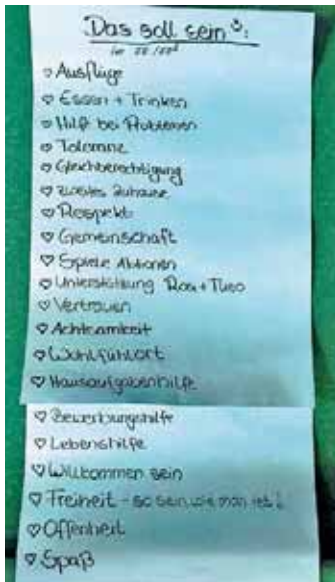 Das soll sein :
im
♡ Ausflüge
♡ Essen + Trinken
♡ Hilfe bei Problemen
♡ Toleranz
♡ Gleichberechtigung
♡ zweites Zuhause
♡ Respekt
♡ Gemeinschaft
♡ Spiele Aktionen
♡ Unterstützung Rosi + Theo
♡ Vertrauen
♡ Achtsamkeit
♡ Wohlfühlort
♡ Hausaufgabenhilfe
♡ Bewerbungshilfe
♡ Lebenshilfe
♡ Willkommen sein
♡ Freiheit - so sein wie man ist!
♡ Offenheit
♡ Spaß